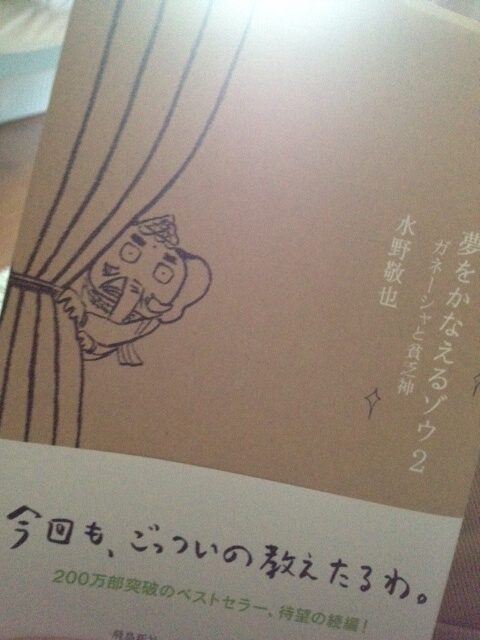 夢をかなえるゾウ2
ガネーシャと貧乏神
水野敬也
今回も、ごっついの教えたるわ。
200万部突破のベストセラー、待望の続編!
飛鳥新社